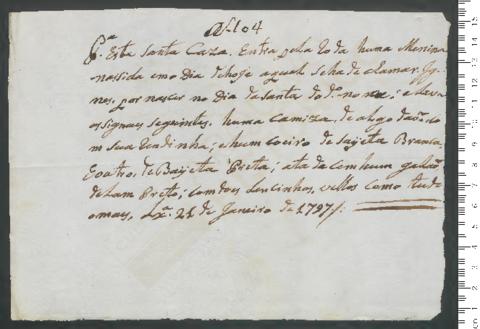 Nº 104
Pª. Esta Santa Caza. Entra pela Roda huma Menina
nassida em o dia de hoje a qual se ha de chamar. Ignes,
por nascer no dia da Santa do dº. nome; e leva
os signaes seguintes. huma Camiza, de algodaõ, co
m sua rendinha; e hum Coeiro de Sajeta Branca,
E outro, de Bajeta Preta; atada com hum galaõ
de Lam Preto; com dous Lencinhos, velhos como tudo
o mais, Lxª. 21 de Janeiro de 1797